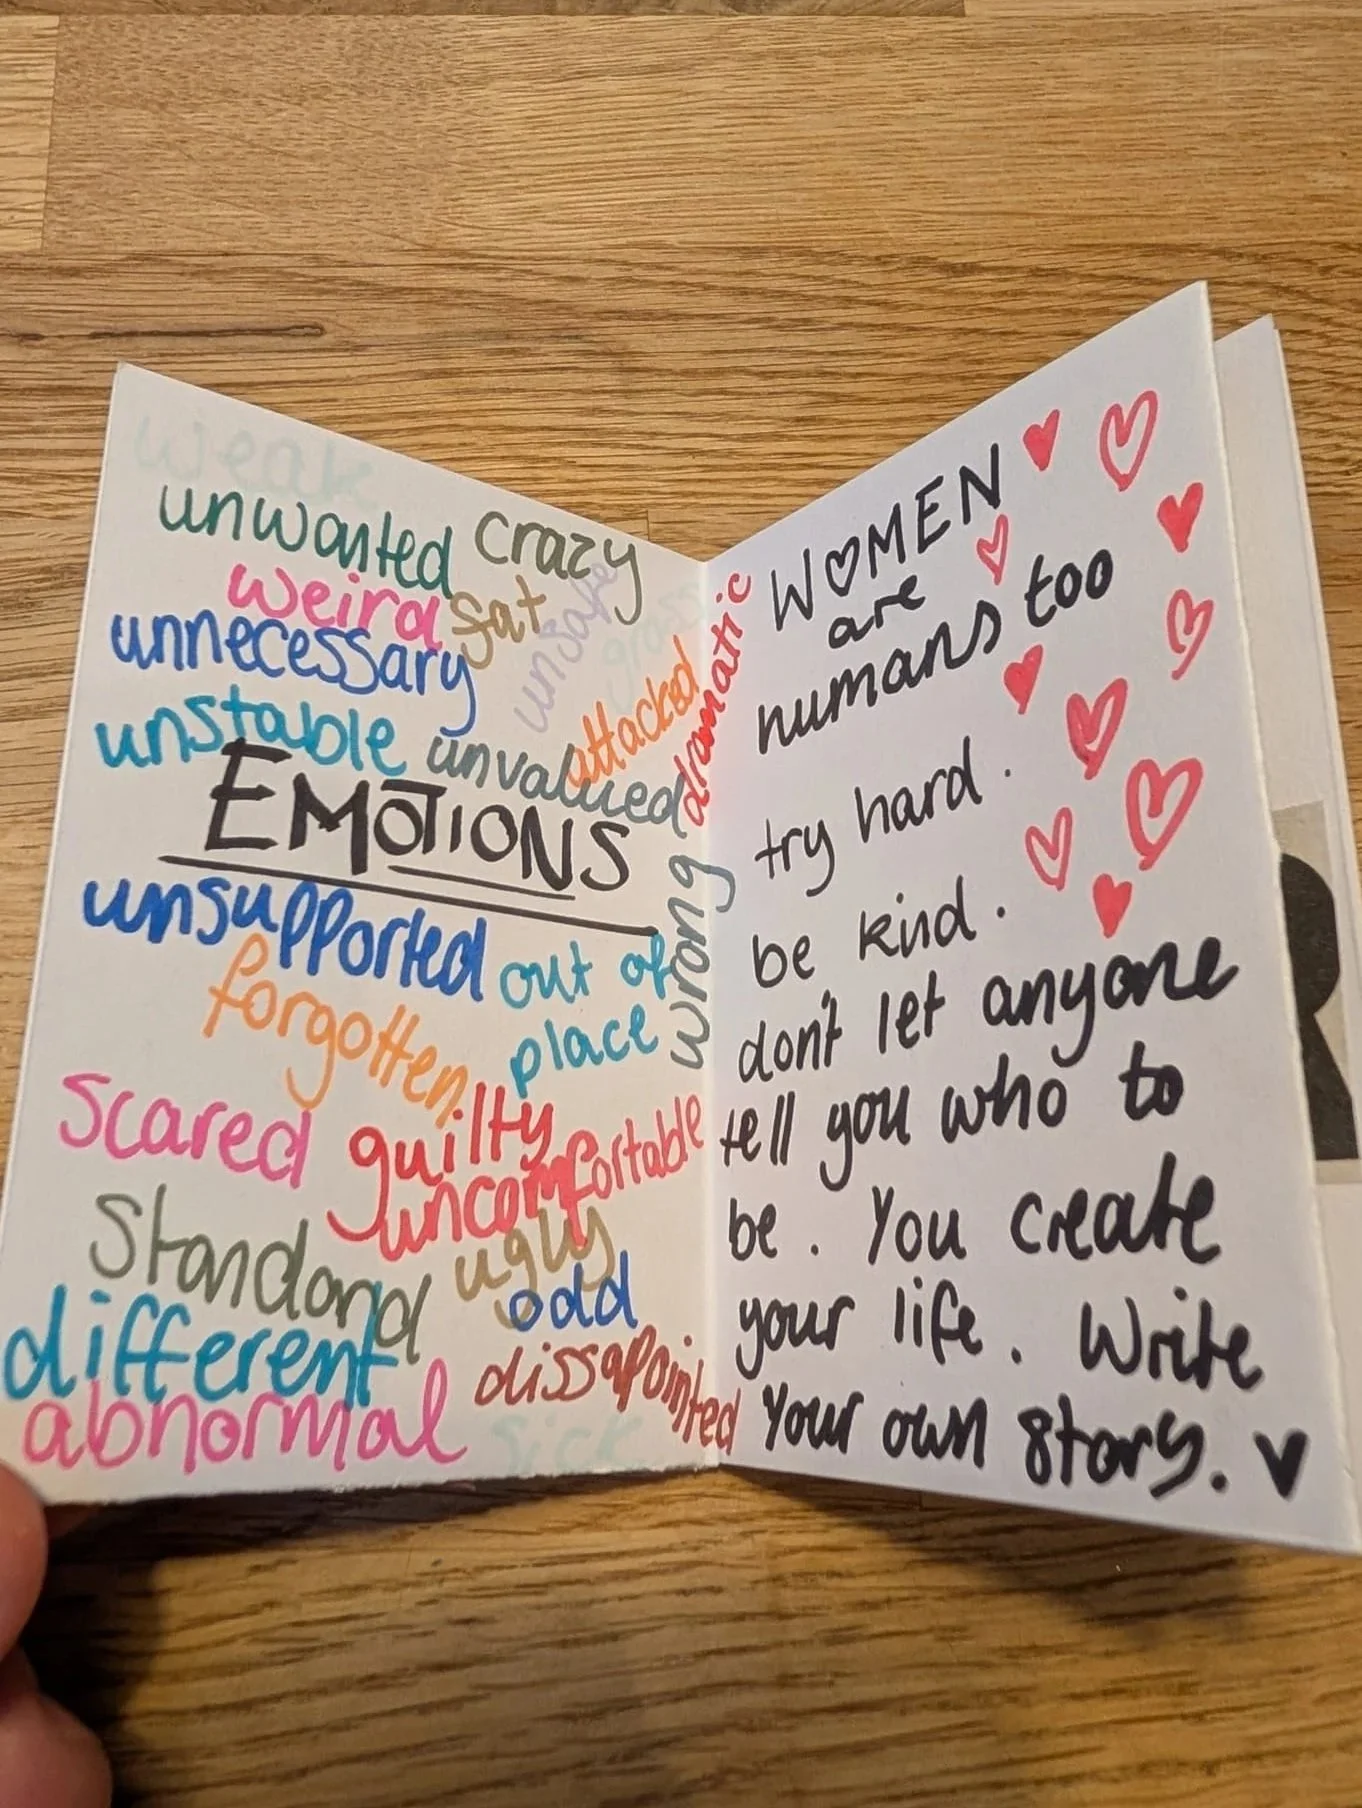 weak
unwanted crazy
weird fat unsafe
unnecessary
attacked dramatic
unstable unvalued
EMOTIONS
unsupported
out of
place
wrong
forgotten
scared guilty
uncomfortable
Standard ugly
odd
different
dissapointed
abnormal sick
WOMEN
are
humans too
try hard.
be kind.
don't let anyone
tell you who to
be. You create
your life. Write
Your own story.
R